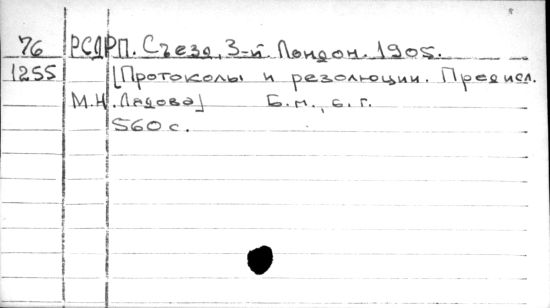 76 РСДРП. Съезд, 3-й. Лондон. 1905.
1255 [Протоколы и резолюции. Предисл.
М.Н. Лядова] Б.м., б.г.
560 с.